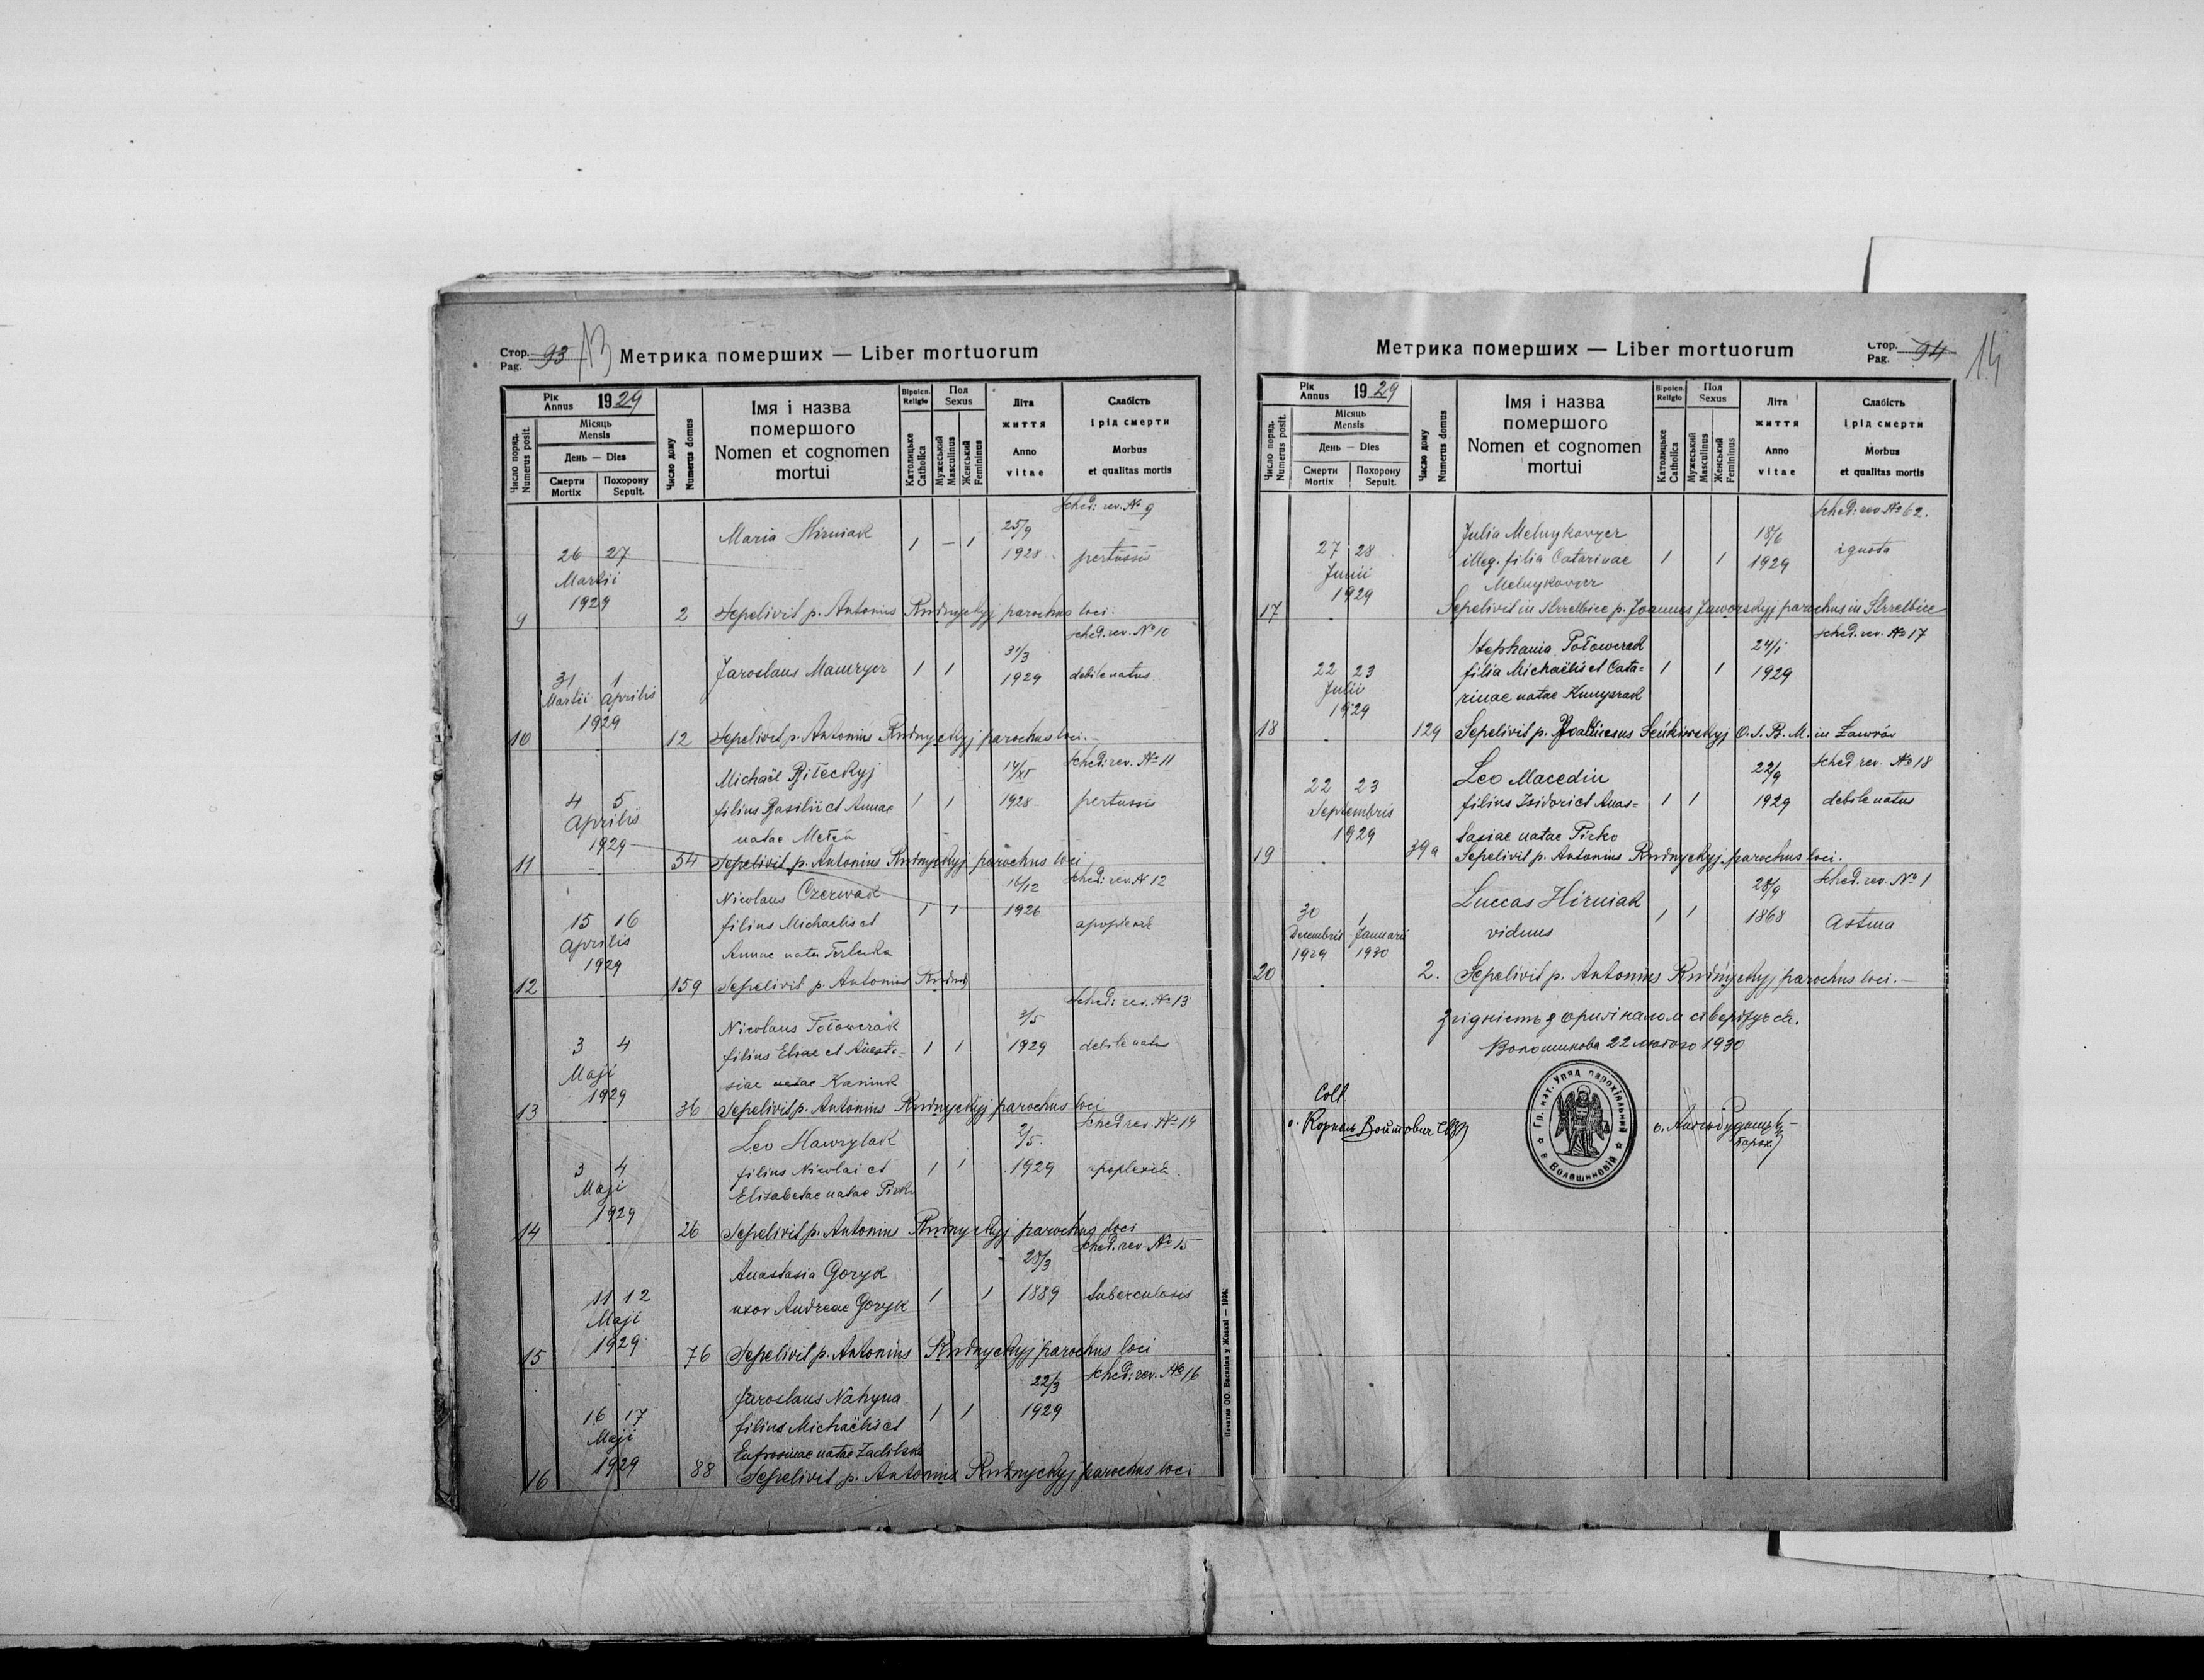 Стор. 93 13
Pag.
Метрика померших — Liber mortuorum
Рік Annus 1929
Число поряд. Numerus posit.
Місяць Mensis
День — Dies
Смерти Mortix
Похорону Sepult.
Число дому Numerus domus
Імя і назва помершого
Nomen et cognomen mortui
Віроісп. Religio
Католицьке Catholica
Пол Sexus
Мужеський Masculinus
Женський Femininus
Літа життя
Anno vitae
Слабість і рід смерти
Morbus et qualitas mortis
Sched: rev. № 9
Maria Hirniak 1 – 1 25/9 1928 pertussis
26 27 Martii 1929
9 2 Sepelivit p. Antonius Rudnyckyj parochus loci.
Sched. rev. № 10
Jaroslaus Mawryer 1 1 31/3 1929 debile natus
31 Martii 1 Aprilis 1929
10 12 Sepelivit p. Antonius Rudnyckyj parochus loci.–
Sched: rev. № 11
Michaël Biłeckyj 14/XI 1928 pertussis
4 5 Aprilis 1929
filius Basilii et Annae 1 1
natae Meten
11 54 Sepelivit p. Antonius Rudnyckyj parochus loci
Sched: rev. № 12
Nicolaus Czerwak 16/12 1926
15 16 Aprilis 1929
filius Michaelis et 1 1
Annae natae Terlecka
12 159 Sepelivit p. Antonius
Sched: rev. № 13
Nicolaus Tołowczak 3/5 1929 debile natus
3 4 Maji 1929
filius Eliae et Anasta= 1 1
siae natae Kaniuk
13 36 Sepelivit p. Antonius Rudnyckyj parochus loci
Sched rev. № 14
Leo Hawrylak 2/5. 1929 apoplexia.
3 4 Maji 1929
filius Nicolai et 1 1
Elisabetae natae Pirko
14 26 Sepelivit p. Antonius Rudnyckyj parochus loci
Sched. rev. № 15
Anastasia Goryk 28/3 1889 tuberculosis
11 12 Maji 1929
uxor Andreae Goryk 1 1
15 76 Sepelivit p. Antonius Rudnyckyj parochus loci
Sched: rev. № 16
Jaroslaus Nahyna 22/3 1929
16 17 Maji 1929
filius Michaëlis et 1 1
Eufrosinae natae
16 88 Sepelivit p. Antonius Rudnyckyj parochus loci
Печатня ОО. Василіян у Жовкві — 1924.
Метрика померших — Liber mortuorum
Стор. 94 14
Pag.
Рік Annus 1929
Число поряд. Numerus posit.
Місяць Mensis
День — Dies
Смерти Mortix
Похорону Sepult.
Число дому Numerus domus
Імя і назва помершого
Nomen et cognomen mortui
Віроісп. Religio
Католицьке Catholica
Пол Sexus
Мужеський Masculinus
Женський Femininus
Літа життя
Anno vitae
Слабість і рід смерти
Morbus et qualitas mortis
Sched: rev. № 62.
Julia Melnykowycz 18/6 1929 ignota
27 28 Junii 1929
illeg. filia Catarinae 1 1
Melnykowycz
17 Sepelivit in Strzelbice p. Joannes Jaworskyj parochus in Strzelbice
Sched. rev. № 17
Stephania Tołowczak 24/1 1929
22 23 Julii 1929
filia Michaëlis et Cata= 1 1
rinae natae Kunyszak
18 129 Sepelivit p. O. S. B. M. in Ławrów
Sched rev. № 18
Leo Macedin 22/9 1929 debile natus
22 23 Septembris 1929
filius Isidori et Anas= 1 1
tasiae natae Pirko
19 39a Sepelivit p. Antonius Rudnyckyj parochus loci.
Sched. rev. № 1
Luccas Hirniak 28/9 1868 Astma
30 Decembris 1929 1 Januarii 1930
viduus 1 1
20 2. Sepelivit p. Antonius Rudnyckyj parochus loci.–
Згідність з оригіналом стверджуєся.
Волошинова 22 лютого 1930
Coll
о. Корниль Войтович
Гр. кат. Уряд парохіяльний в Волошиновій
парох